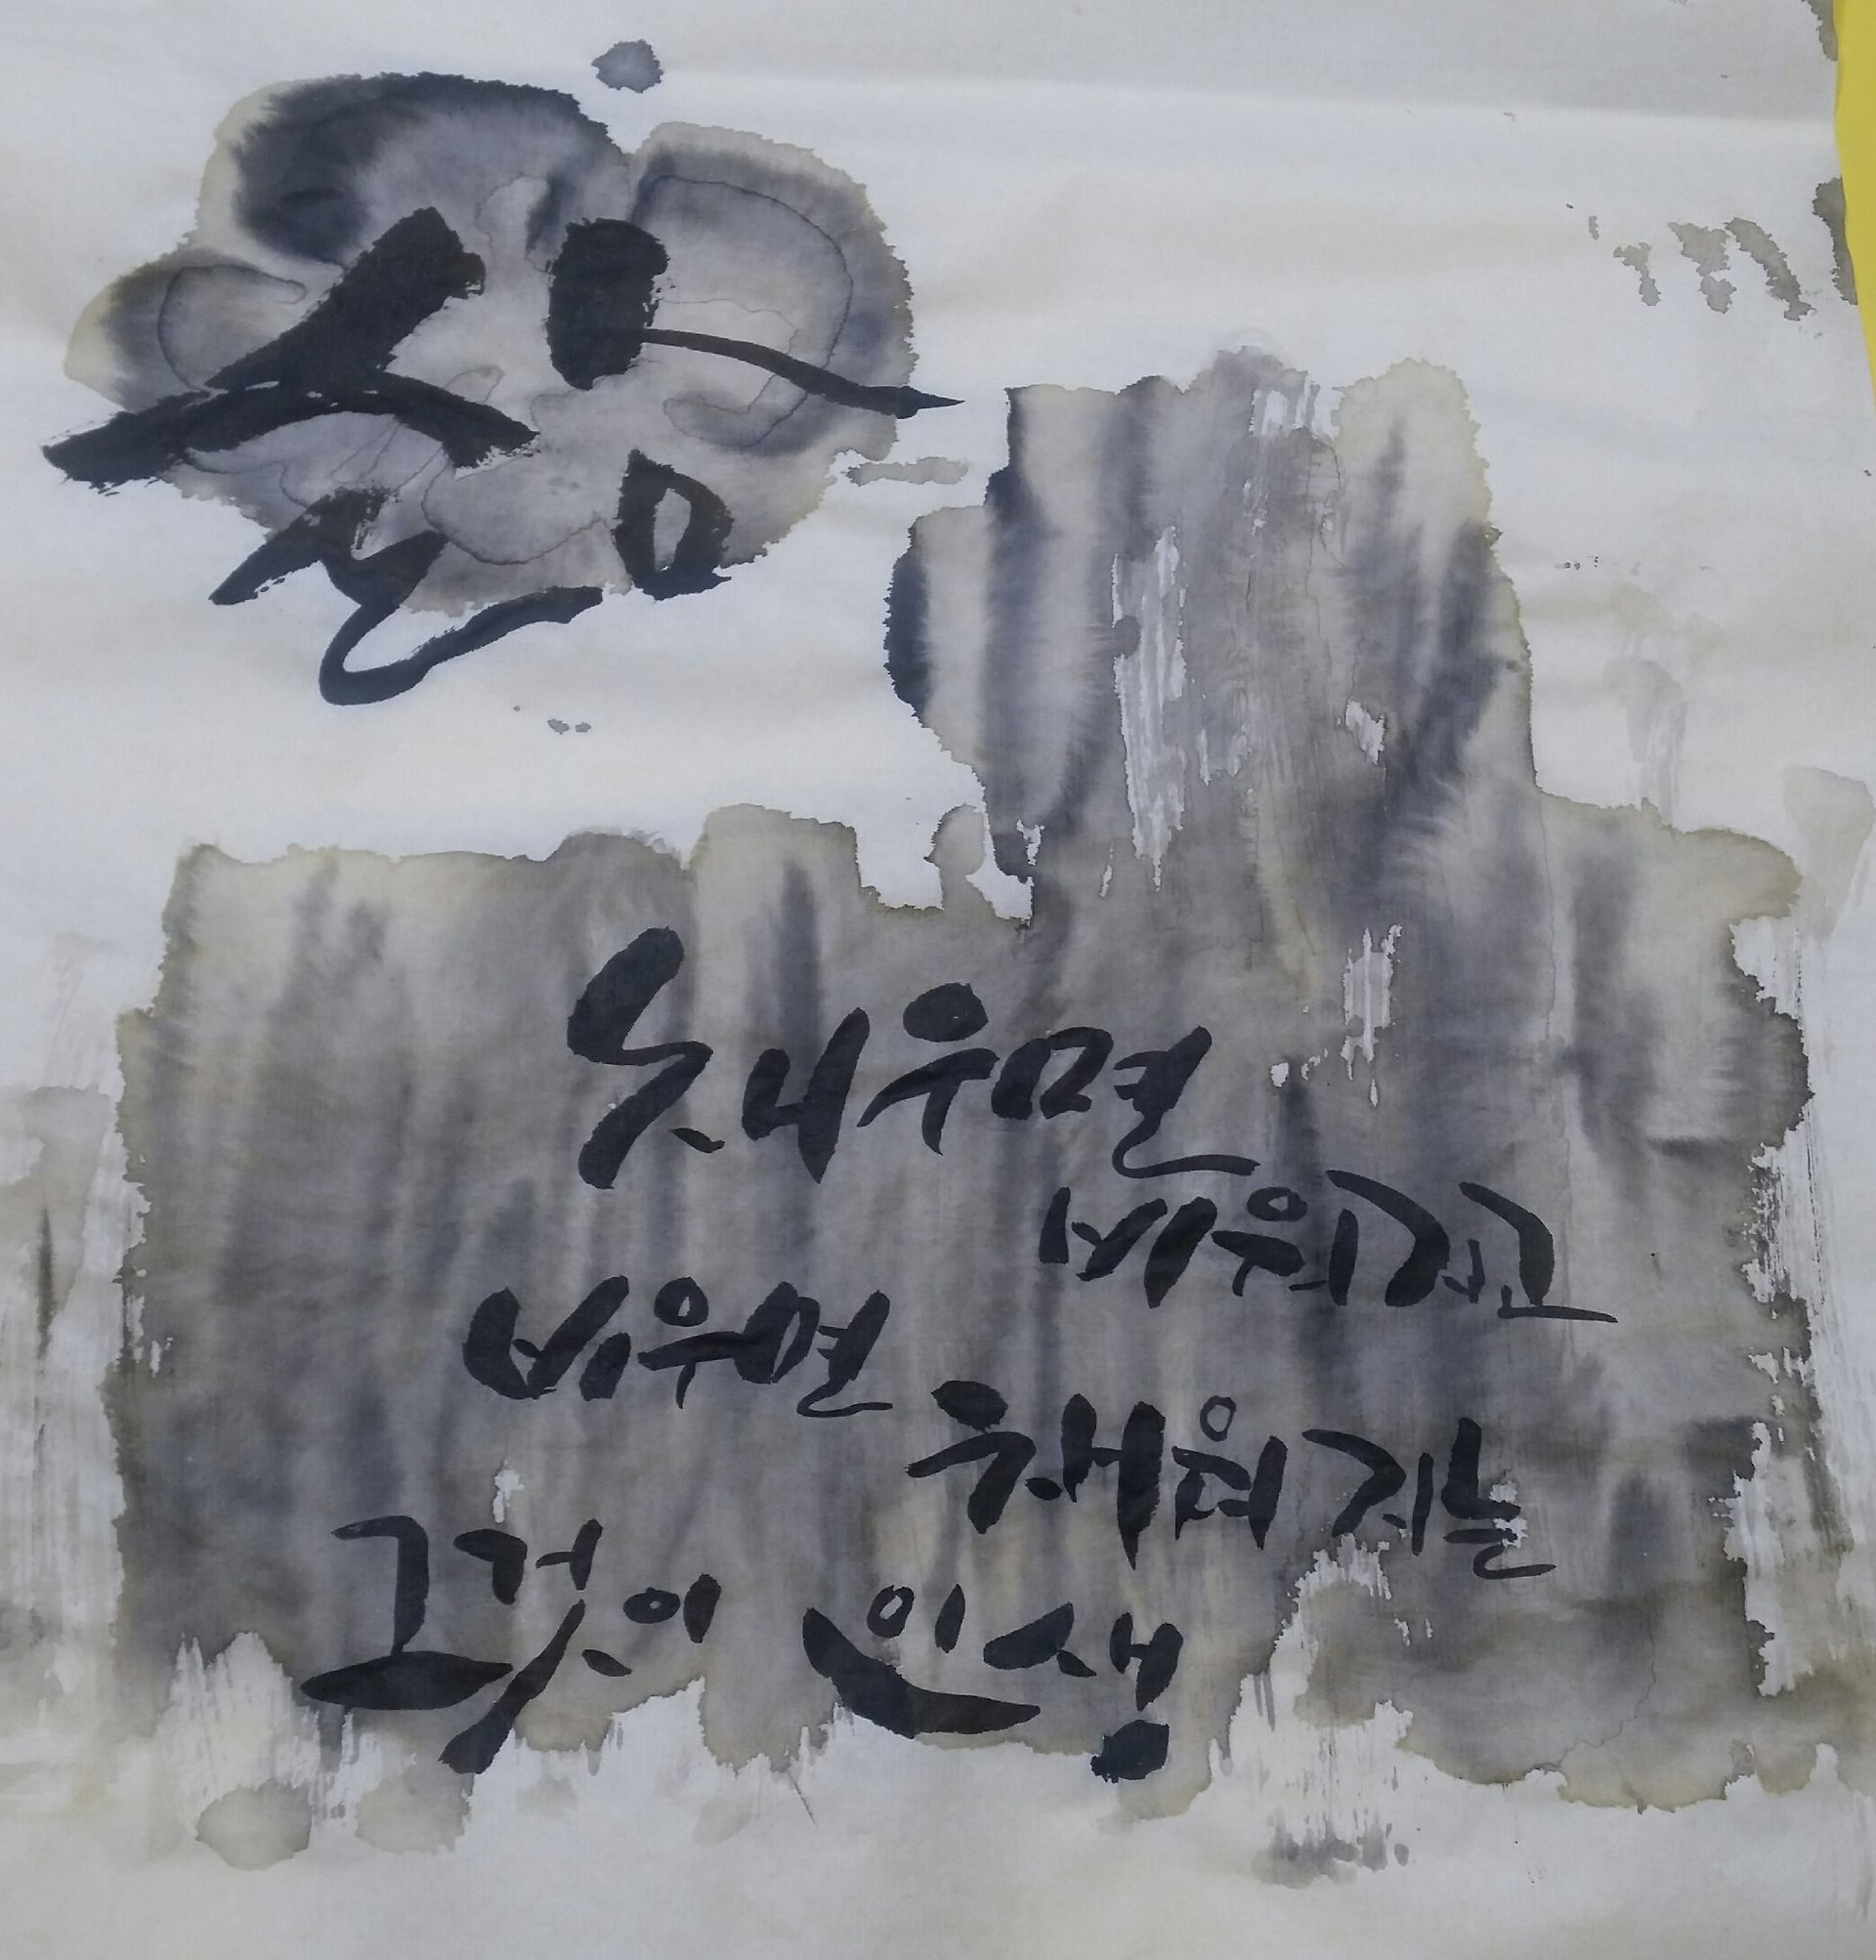 삶
채우면
비워지고
비우면
채워지는
그것이 인생